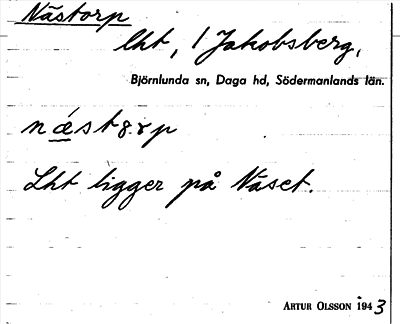 Nästorp
lht, 1 Jakobsberg,
Björnlunda sn, Daga hd, Södermanlands län.
næ´st8rp
Lht ligger på Näset.
ARTUR OLSSON 1943